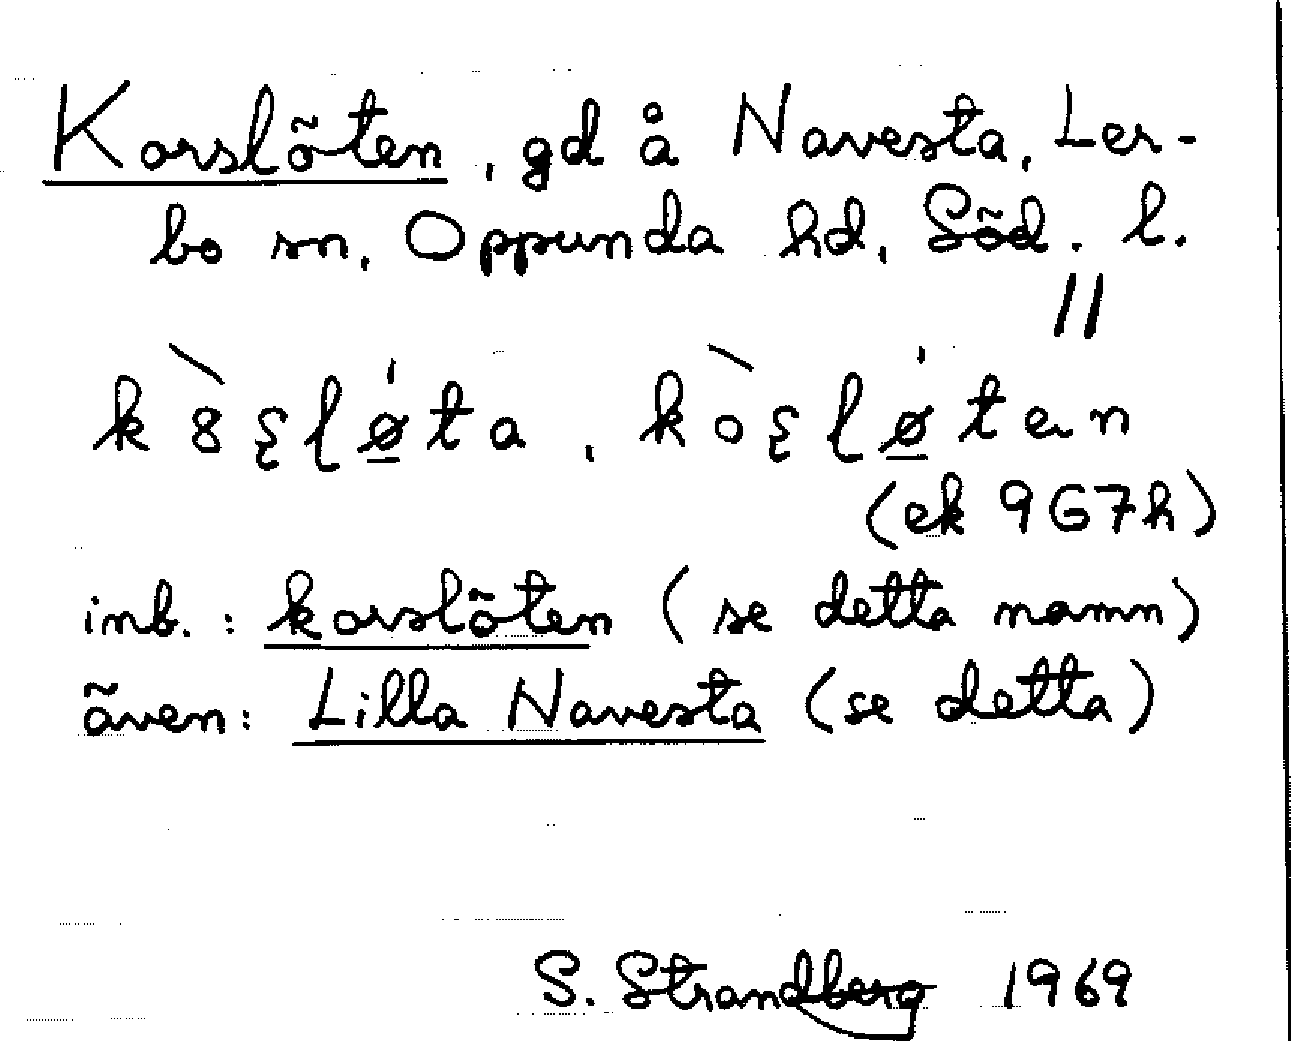 Korslöten, gd å Navesta, Ler-
bo sn, Oppunda hd, Söd. l.
k8̀ʂɭǿ̲ta, kòʂɭǿ̲tən
(ek 9G7h)
inb.: korslöten (se detta namn)
även: Lilla Navesta (se detta)
S. Strandberg 1969